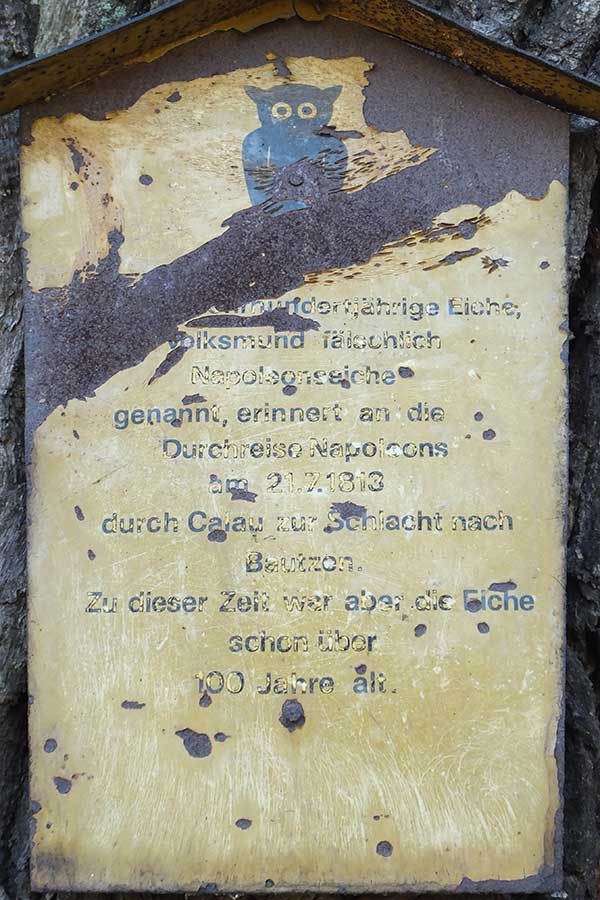 hundertjährige Eiche,
Volksmund fälschlich
Napoleonseiche
genannt, erinnert an die
Durchreise Napoleons
am 21.7.1813
durch Calau zur Schlacht nach
Bautzen.
Zu dieser Zeit war aber die Eiche
schon über
100 Jahre alt.